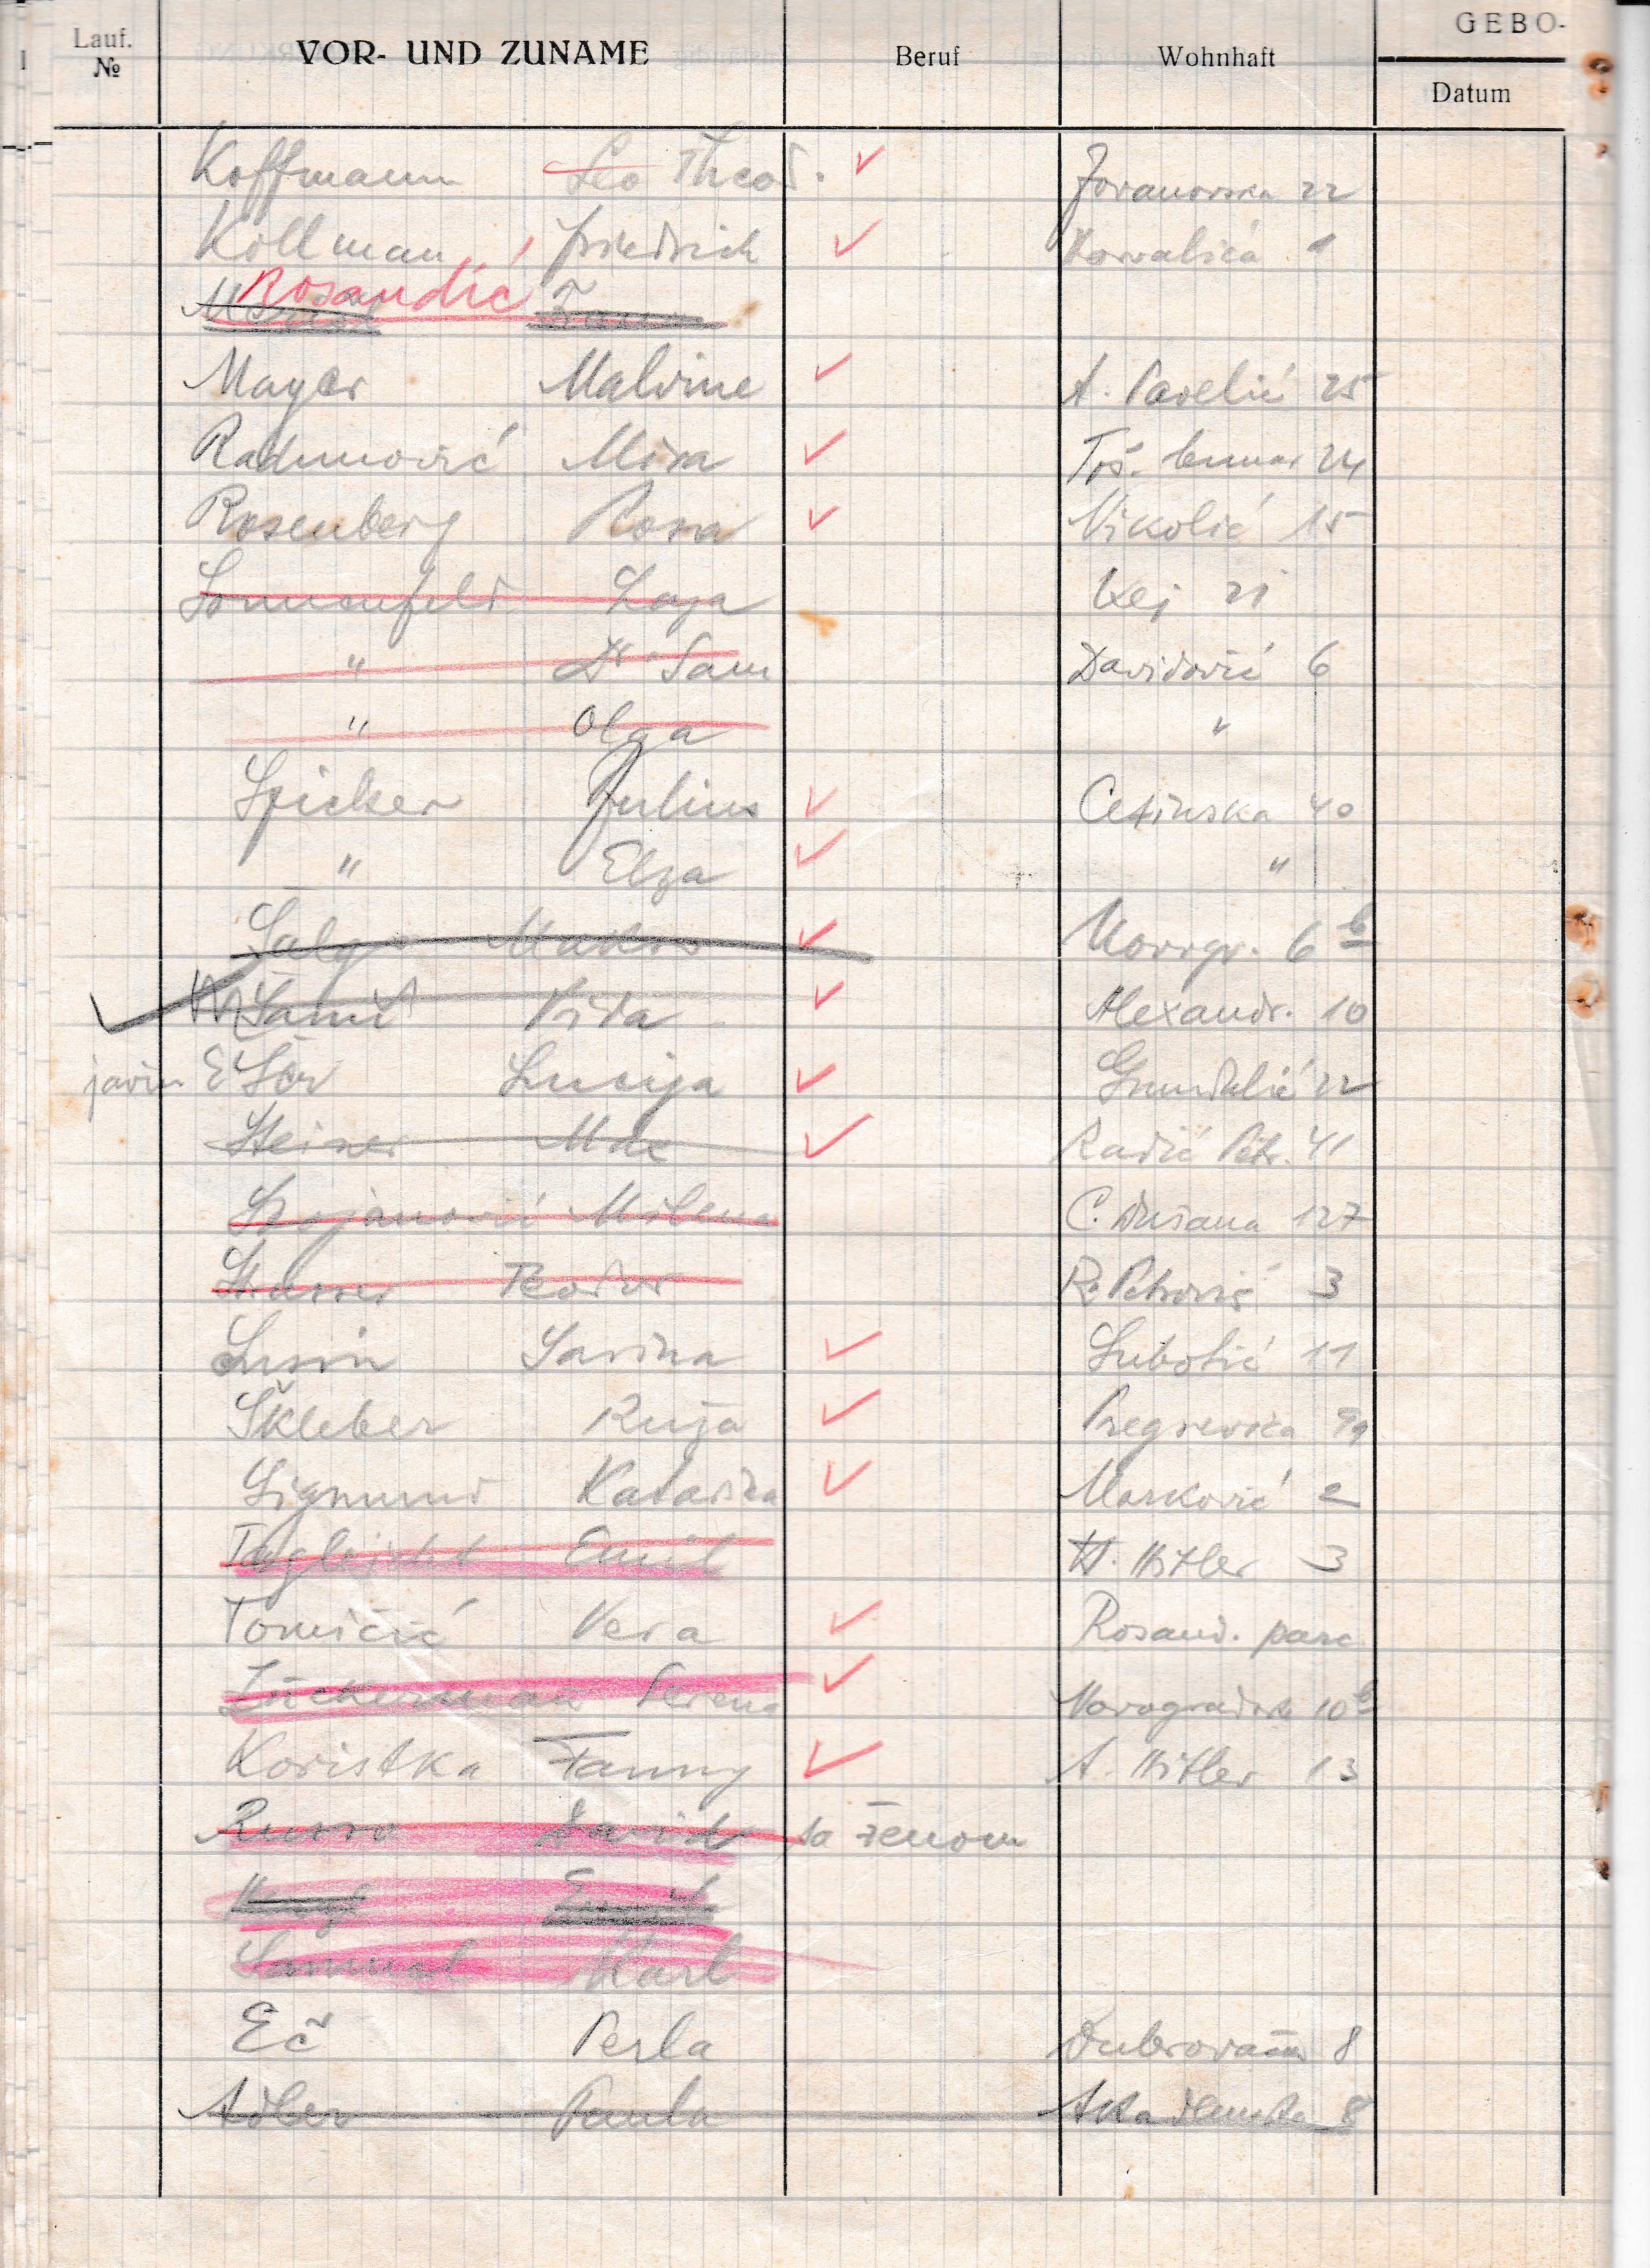 Lauf. № VOR- UND ZUNAME Beruf Wohnhaft GEBO-
Datum
Koffmann Leo Theod. ✓ Jovanovska 22
Kollman Friedrich ✓ 1
Rosandić
Mayer Malvine ✓ A. Pavelić 25
Radunović Mira ✓ Toš. bunar 24
Rosenberg Rosa ✓ Nikolić 15
Sonnenfeld Laza Kej 21
" Dr Sam Davidović 6
" Olga "
Spicker Julius ✓ Cetinska 40
" Elza ✓ "
Šalgo Markus ✓ Novogr. 6 b
Šamit Vida ✓ Alexandr. 10
javin E Šer Lucija ✓ Gundulić 22
Steiner Max ✓ Radić Petr. 41
Stojanović Milena C. Dušana 127
Teodor R. Petrović 3
Susin Savina ✓ Subotić 11
Škleber Ruža ✓
Sigmund Katarina ✓ Marković 2
Tagleicht Emil A. Hitler 3
Tomičić Vera ✓ Rosand. parc
Zuckerman Serena ✓ Novogradsk 10b
Koristka Fanny ✓ A. Hitler 13
Russo David sa ženom
Samuel Karl
Eč Perla 8
Adler Paula 8